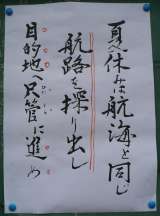 夏休みは航海と同じ
航路を探り出し
目的地へ只管に進め